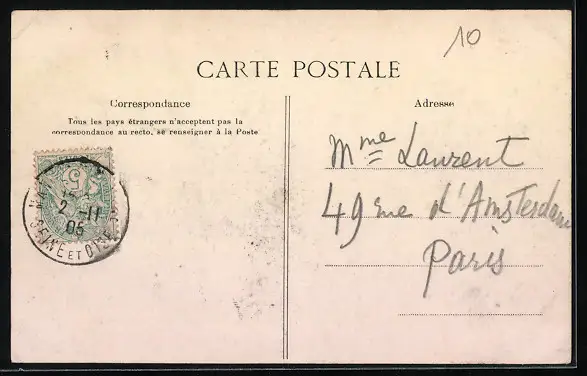 10
CARTE POSTALE
Correspondance
Tous les pays étrangers n'acceptent pas la
correspondance au recto, se renseigner à la Poste
Adresse
5
2 -11
05
SEINE ET OISE
Mme Laurent
49 rue d'Amsterdam
Paris